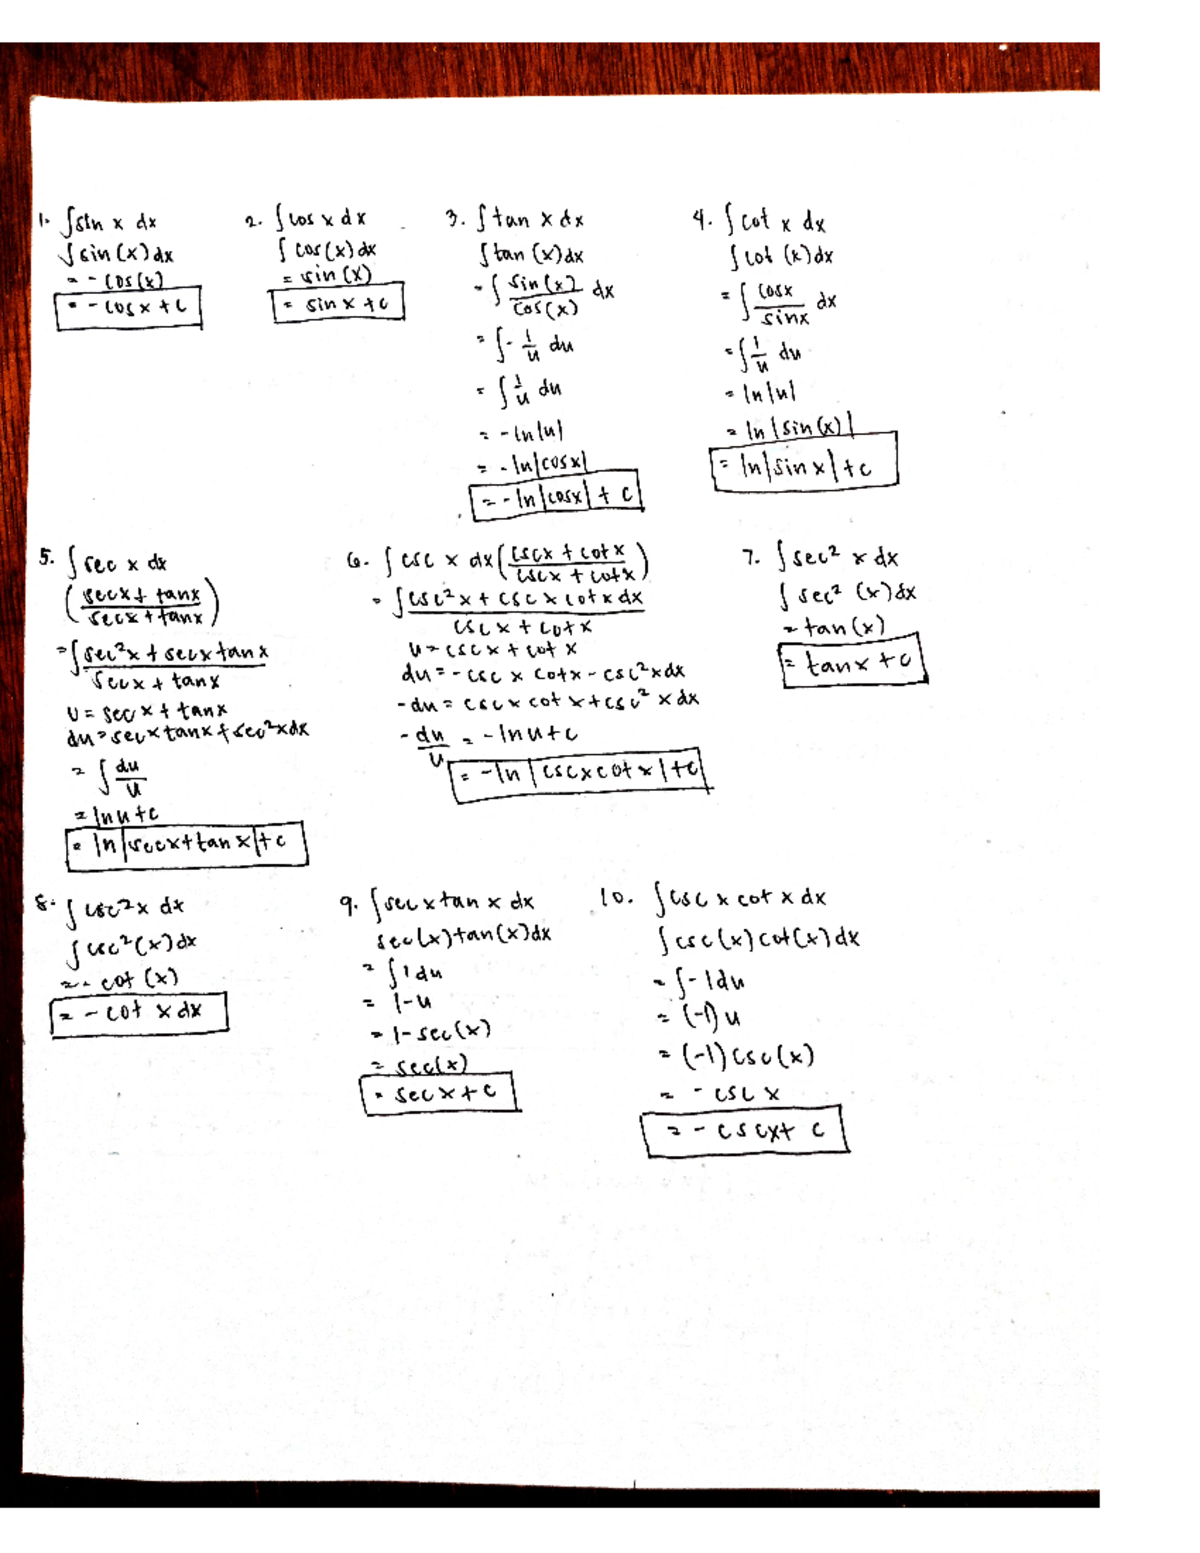 1. ∫sin x dx
∫sin(x)dx
= -cos(x)
= -cosx+c
2. ∫cos x dx
∫cos(x)dx
= sin(x)
= sin x +c
3. ∫tan x dx
∫tan (x)dx
= ∫ sin(x) / cos(x) dx
= ∫- 1/u du
= ∫ 1/u du
= -ln|u|
= -ln|cosx|
= -ln|cosx| + c
4. ∫cot x dx
∫cot (x)dx
= ∫ cosx / sinx dx
= ∫ 1/u du
= ln|u|
= ln|sin(x)|
= ln|sin x|+c
5. ∫sec x dx
(secx+ tanx / secx+tanx)
= ∫ sec²x + secx tanx / secx + tanx
u = sec x + tanx
du = secx tanx + sec²xdx
= ∫ du/u
= ln u+c
= ln|secx+tan x|+c
6. ∫csc x dx (cscx + cotx / cscx + cotx)
= ∫ csc²x + csc x cotx dx / cscx + cotx
u = cscx + cot x
du = -csc x cotx - csc²xdx
-du = cscx cot x + csc² x dx
- du/u = -lnu+c
= -ln|cscxcotx|+c
7. ∫sec² x dx
∫sec² (x)dx
= tan(x)
= tanx +c
8. ∫csc²x dx
∫csc²(x)dx
= - cot (x)
= - cot x dx
9. ∫secxtan x dx
sec(x)tan(x)dx
= ∫1du
= 1-u
= 1-sec(x)
= sec(x)
= sec x + c
10. ∫csc x cot x dx
∫csc(x)cot(x)dx
= ∫-1du
= (-1)u
= (-1)csc(x)
= - csc x
= - cscx+ c